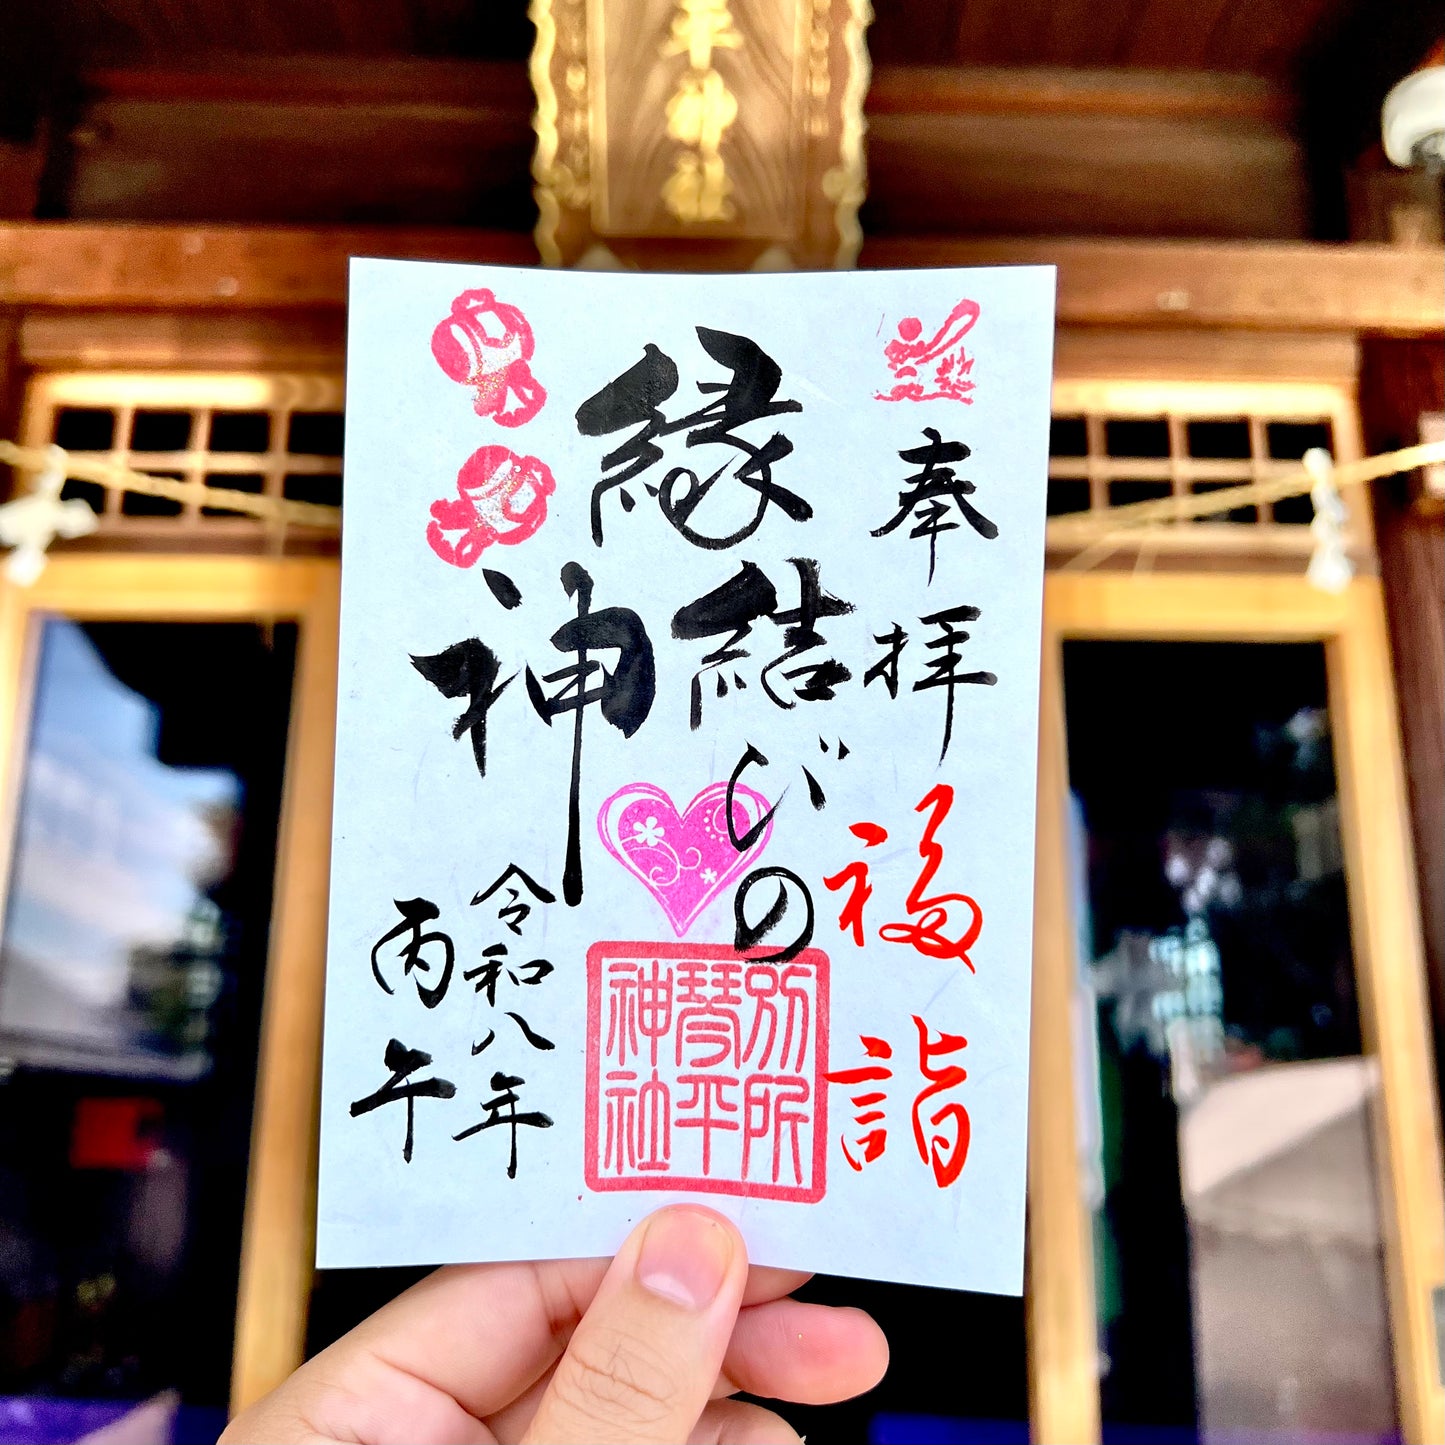 奉拝
福詣
縁結びの
神
別所
琴平
神社
令和八年
丙午